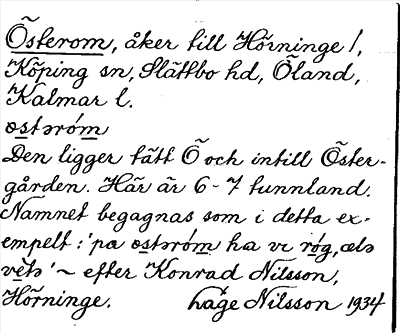 Österom, åker till Hörninge 1,
Köping sn, Slättbo hd, Öland,
Kalmar l.
ɷstəróm
Den ligger tätt Ö och intill Öster-
gården. Här är 6-7 tunnland.
Namnet begagnas som i detta ex-
empelt: 'pa ɷstəróm ha vi róg, ɷlə
vets' ~ efter Konrad Nilsson,
Hörninge. Låge Nilsson 1934